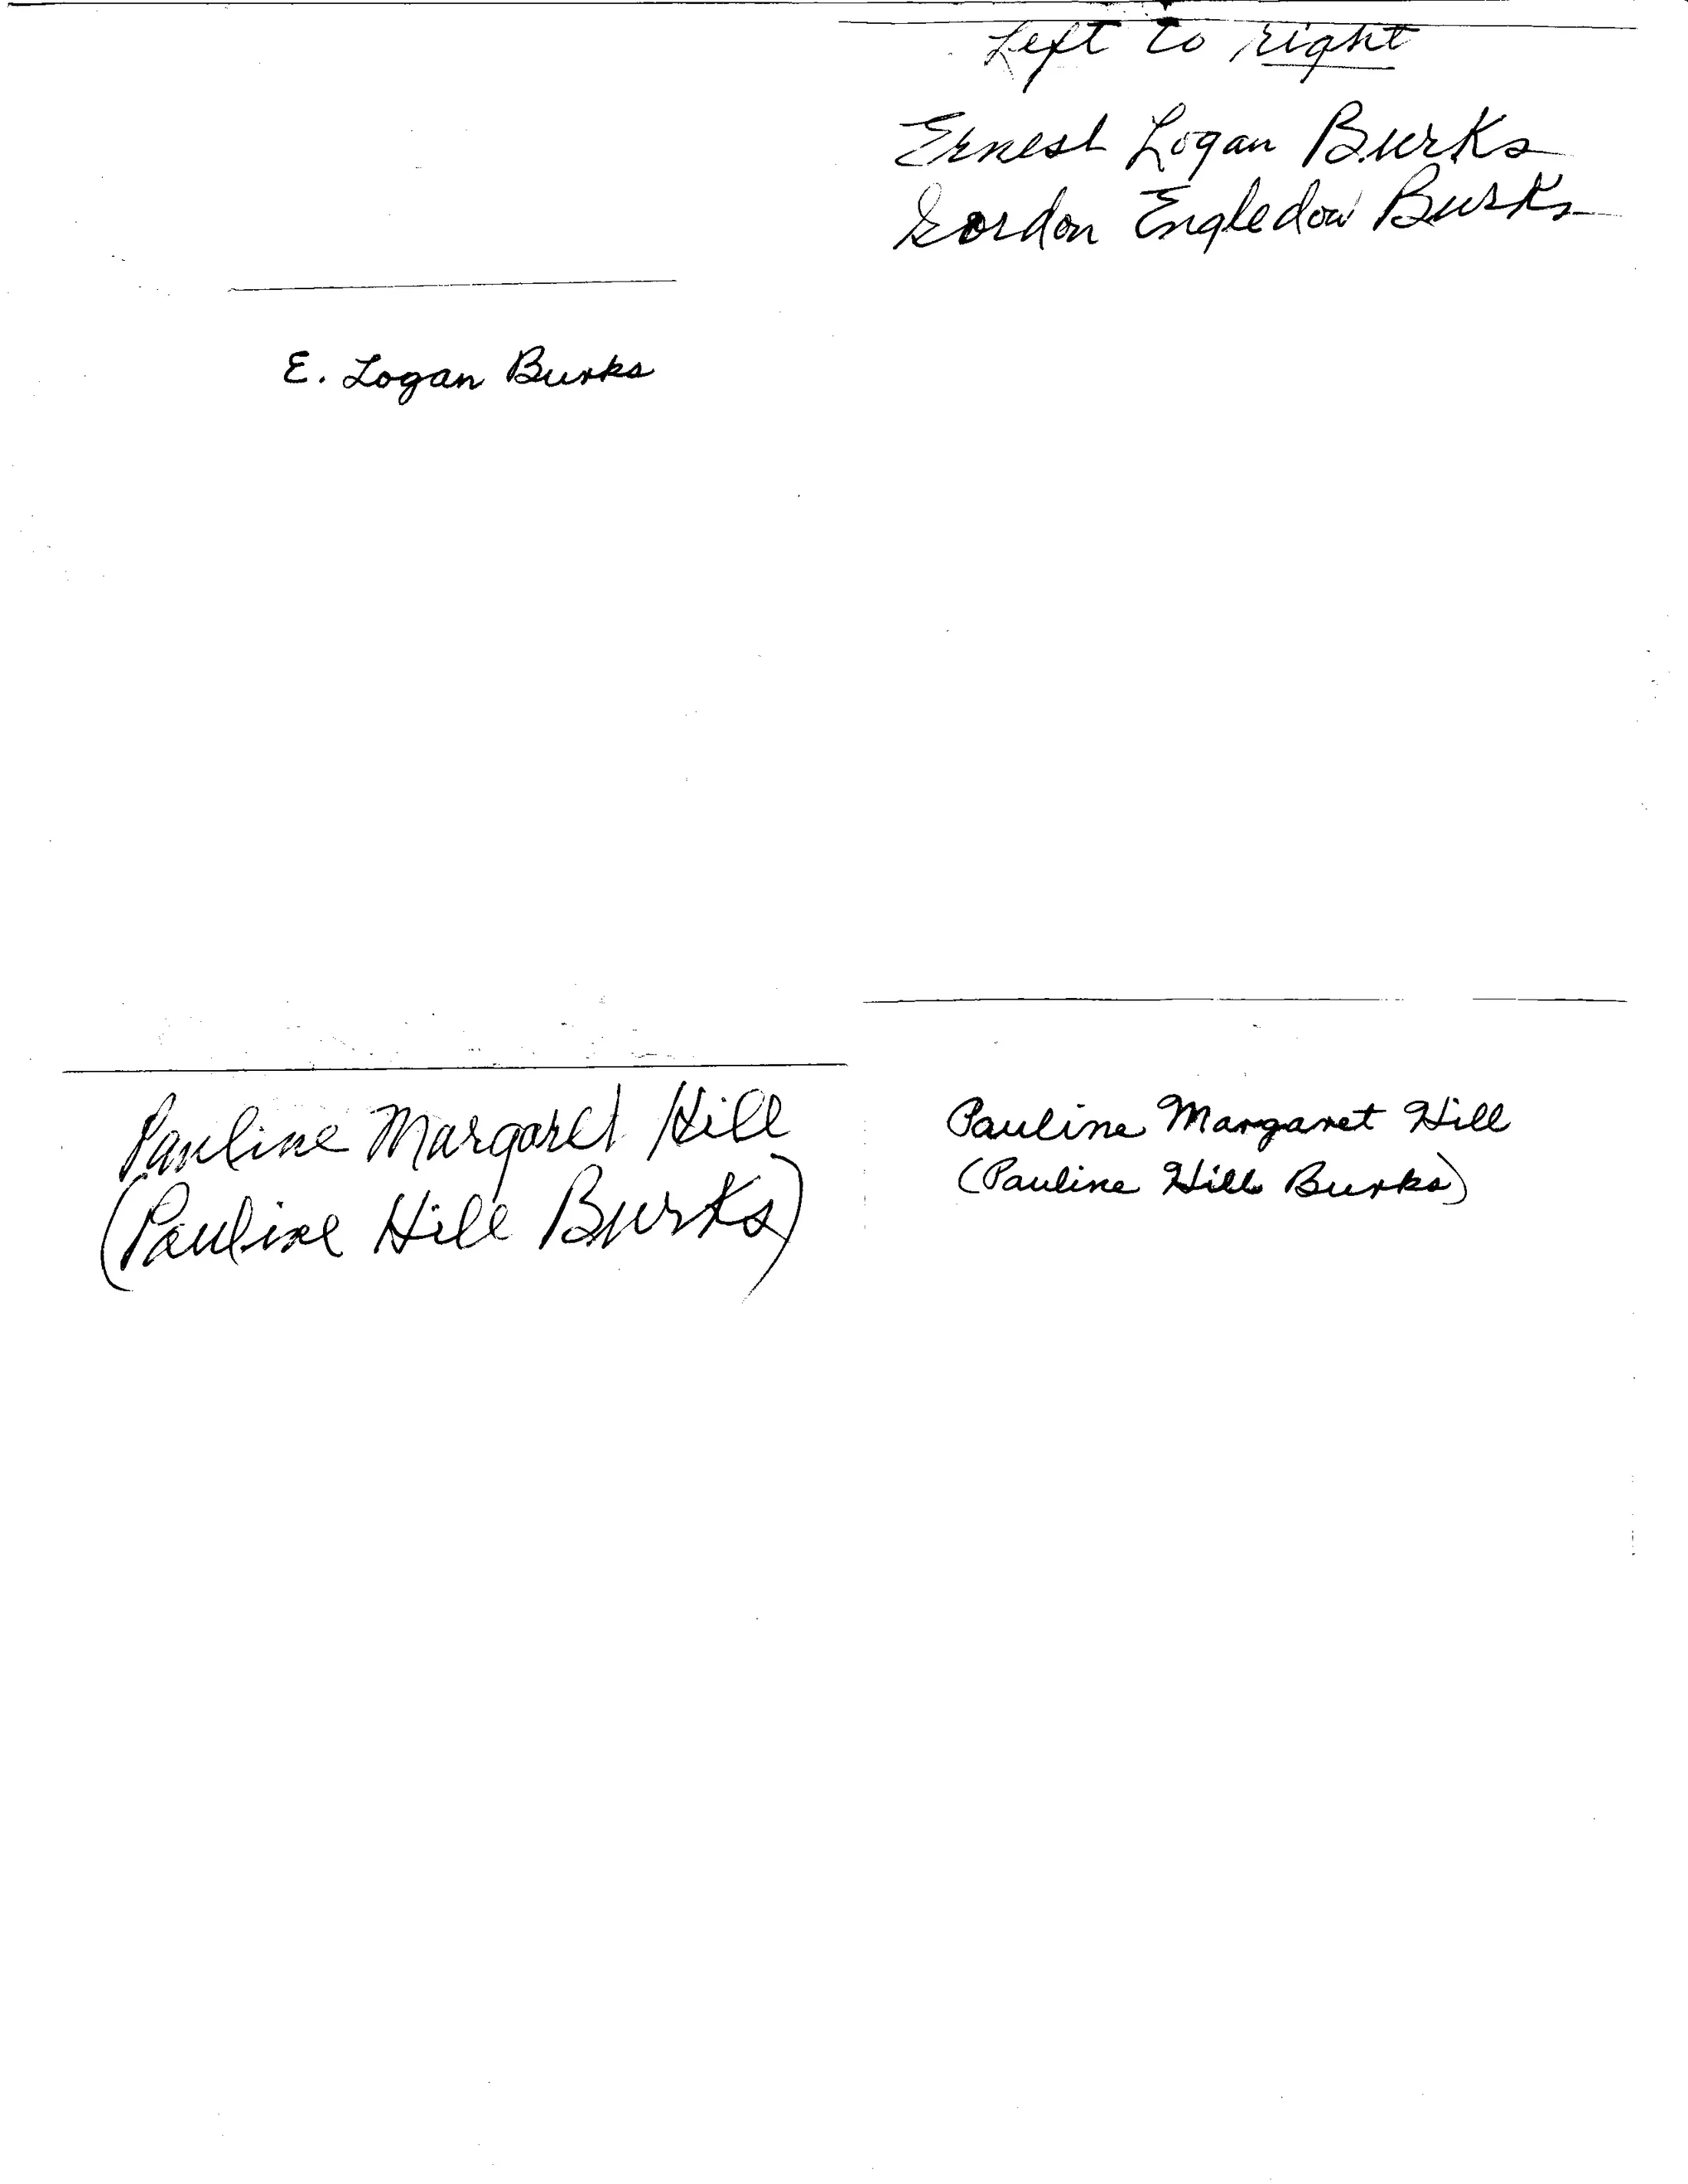 Left to right
Ernest Logan Burks
Gordon Engledow Burks
E. Logan Burks
Pauline Margaret Hill
(Pauline Hill Burks)
Pauline Margaret Hill
(Pauline Hill Burks)